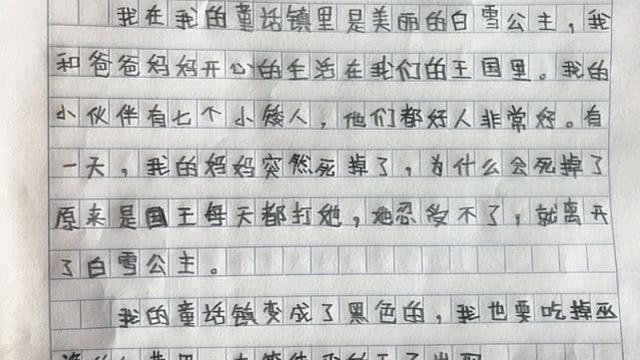 我在我的童话镇里是美丽的白雪公主，我
和爸爸妈妈开心的生活在我们的王国里。我的
小伙伴有七个小矮人，他们都好人非常好。有
一天，我的妈妈突然死掉了，为什么会死掉了
原来是国王每天都打她，她忍受不了，就离开
了白雪公主。
我的童话镇变成了黑色的，我也要吃掉巫